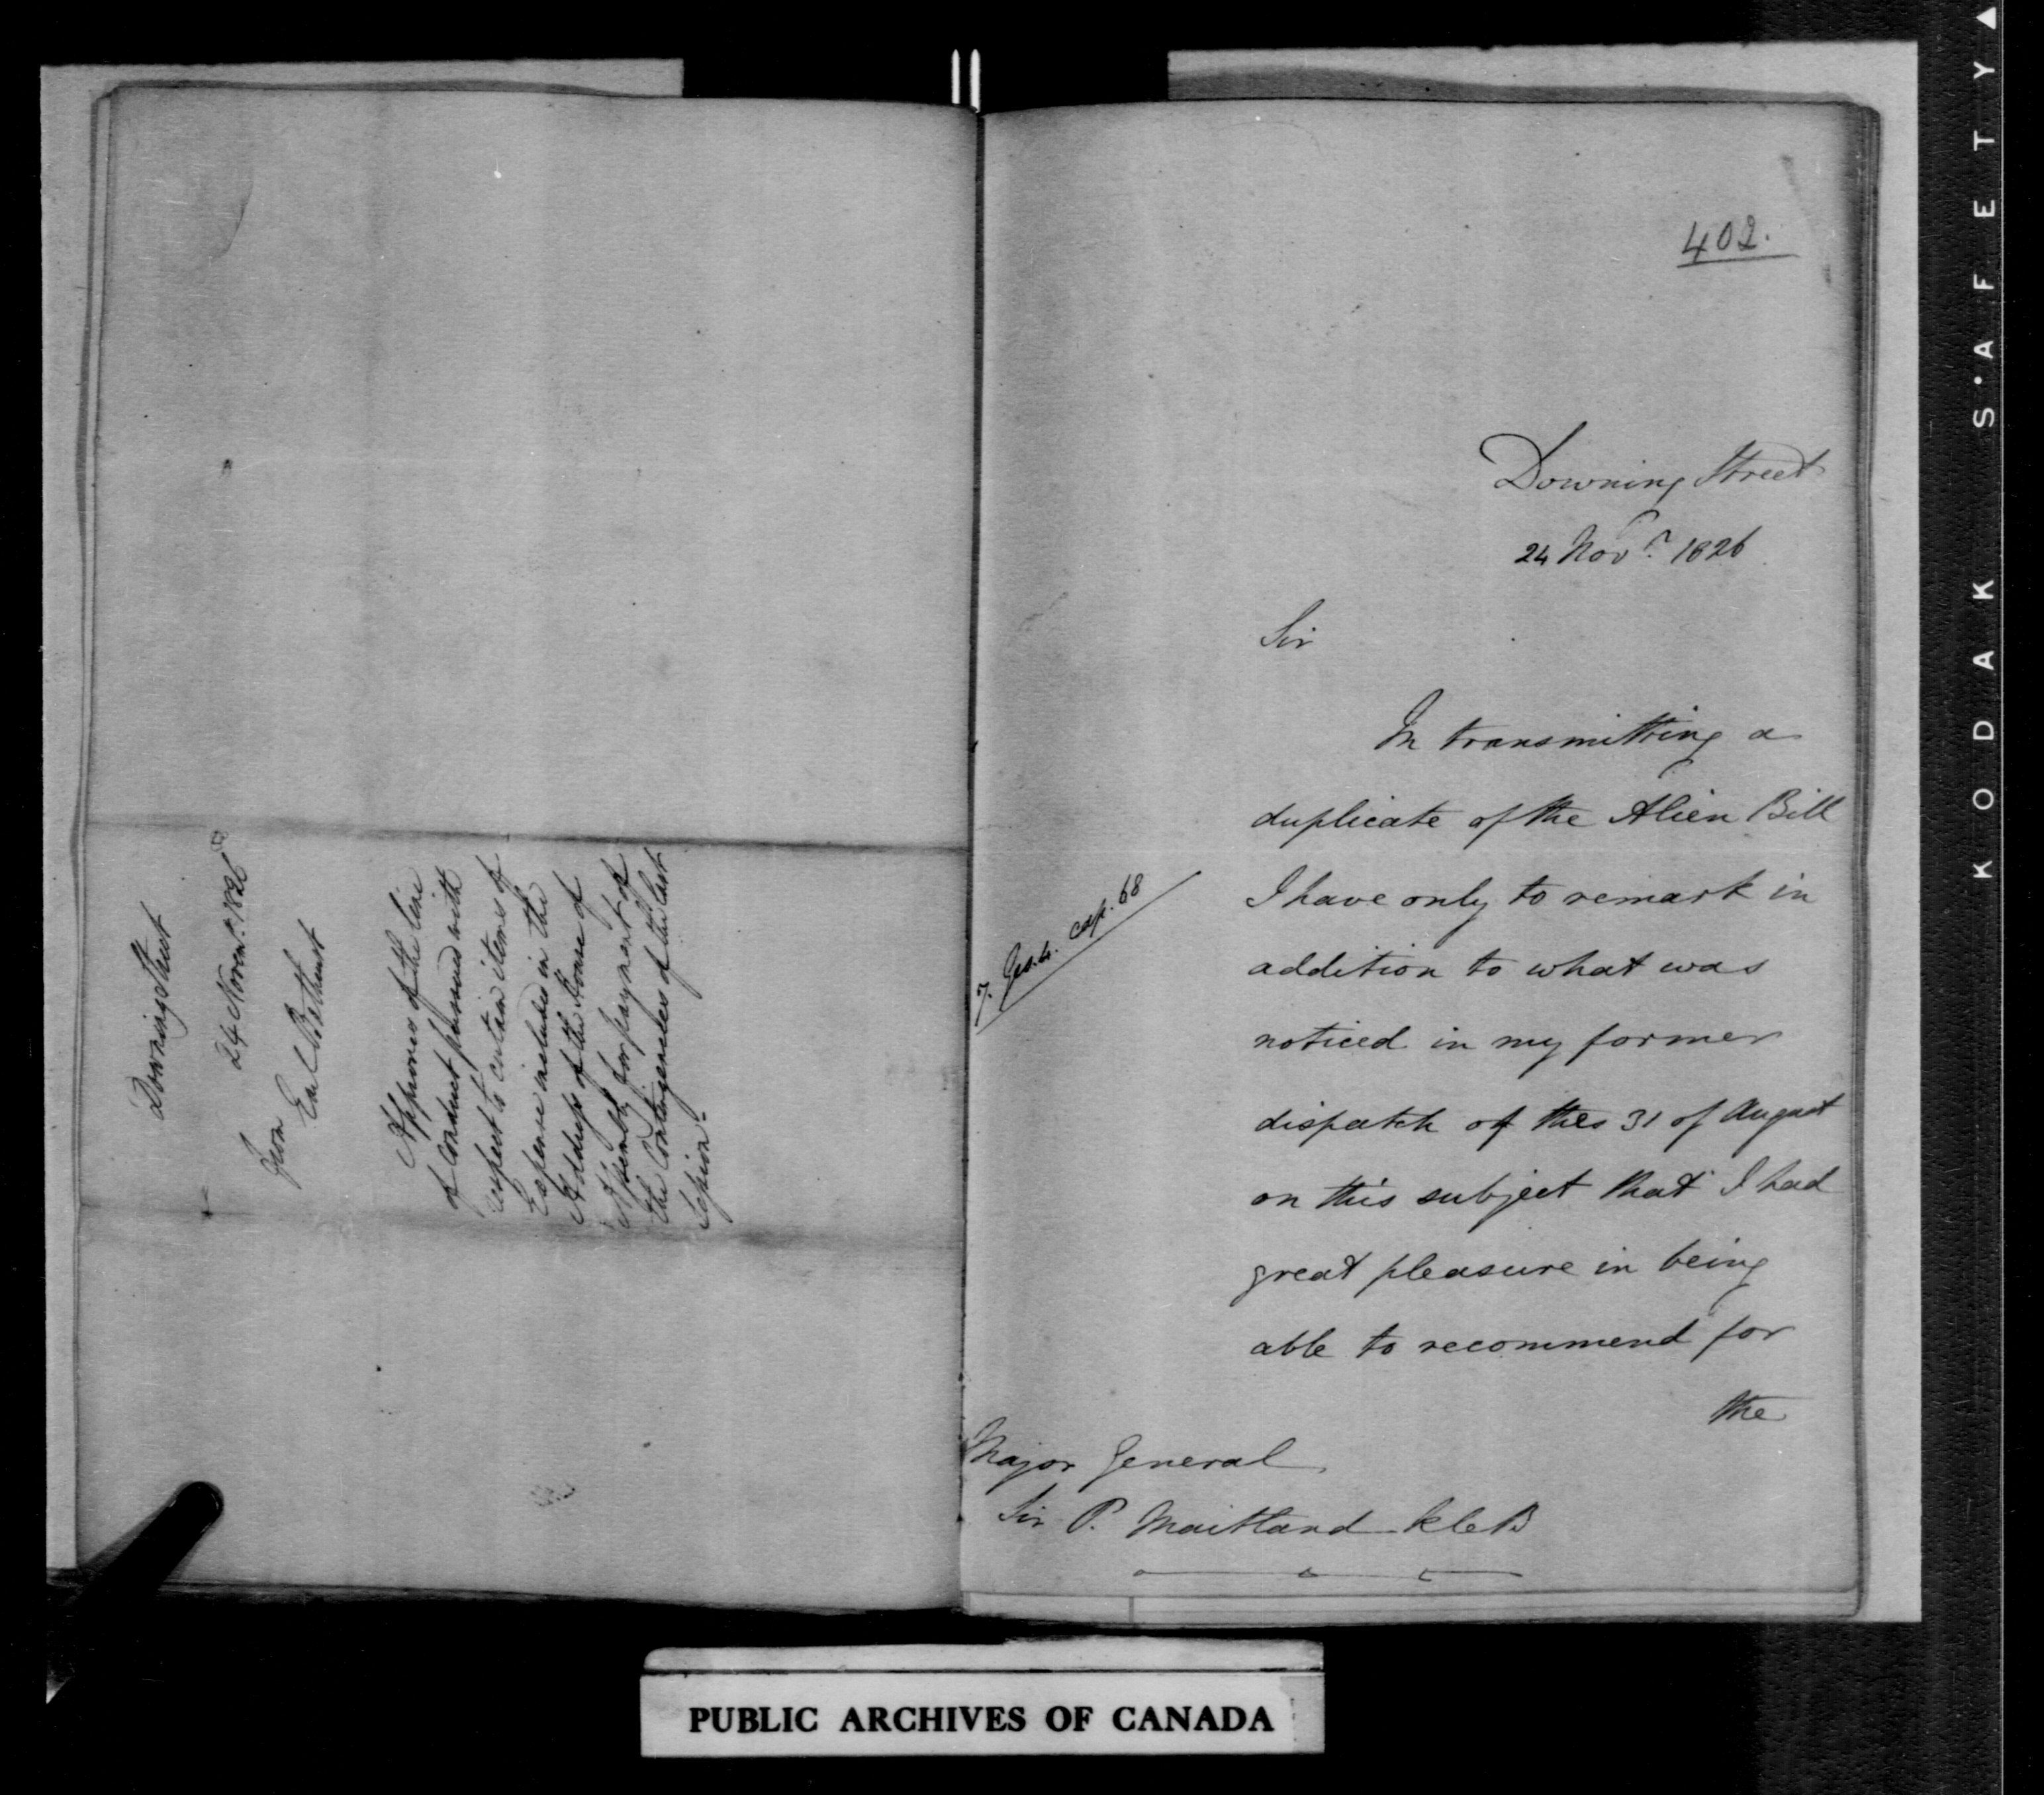 Downing Street
24 Novem.r 1826
From
Earl Bathurst
Approves of the line
of Conduct pursued with
respect to certain items of
Expense included in the
Address of the House of
Assembly for payment of
the Contingencies of the last
Session-
402.
Downing Street
24 Nov.r 1826
Sir
In transmitting a
duplicate of the Alien Bill
7. Geo. 4. cap. 68
I have only to remark in
addition to what was
noticed in my former
dispatch of the 31 of August
on this subject that I had
great pleasure in being
able to recommend for
the
Major General
Sir P. Maitland KCB
PUBLIC ARCHIVES OF CANADA
KODAK S·AFETY ▲